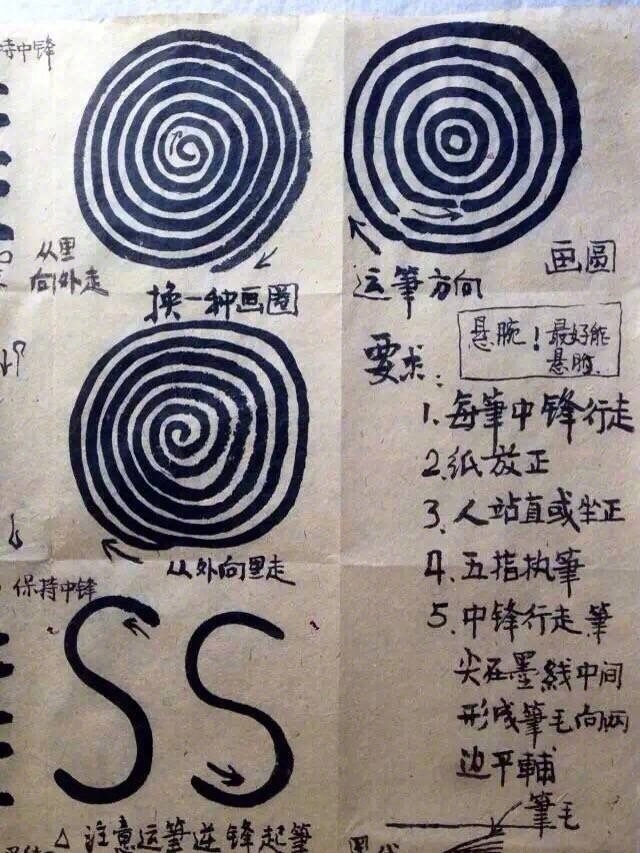 持中锋
从里
向外走
换一种画圈
运筆方向
画圆
要求：
悬腕！最好能
悬肘
1. 每筆中锋行走
2. 纸放正
3. 人站直或坐正
4. 五指执筆
5. 中锋行走筆
尖在墨线中间
形成筆毛向两
边平輔
筆毛
从外向里走
保持中锋
SS
△ 注意运筆逆锋起筆